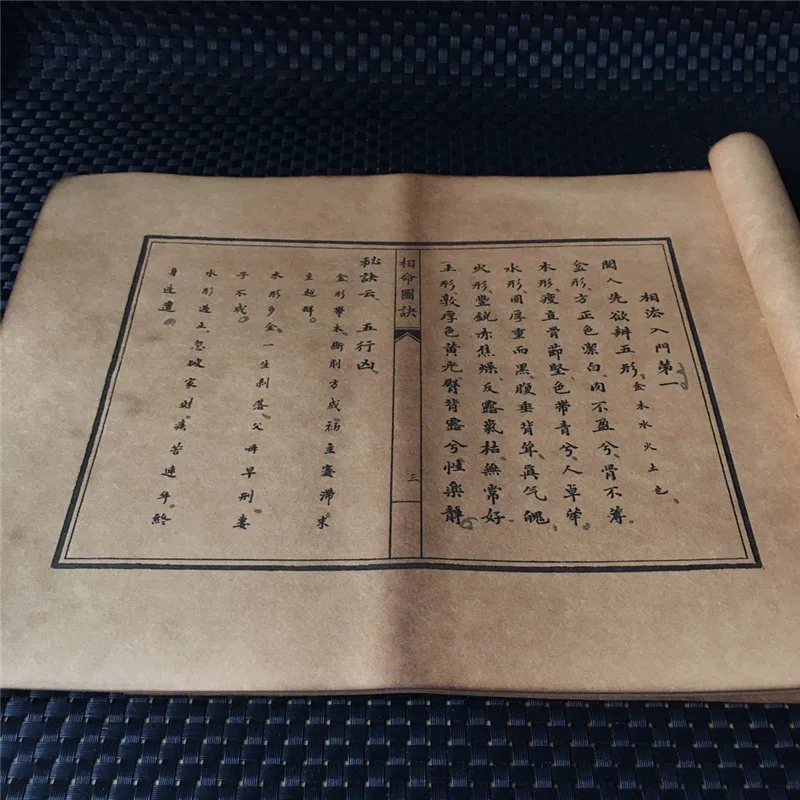 相法入門第一
閱人先欲辨五形 金木水火土也
金形方正色潔白肉不盈兮骨不薄
木形瘦直骨節堅色帶青兮人卓犖
水形圓厚重而黑腹垂背聳真气魄
火形豐銳赤焦燥反露氣枯無常好
土形敦厚色黃光臀背露兮性樂靜
相命圖訣
三
秘訣云五行凶
金形帶木斲削方成初主蹇滯末
主超群
木形多金一生剝落父母早刑妻
子不成
水形遇土忽破家財疾苦連年終
身迍邅